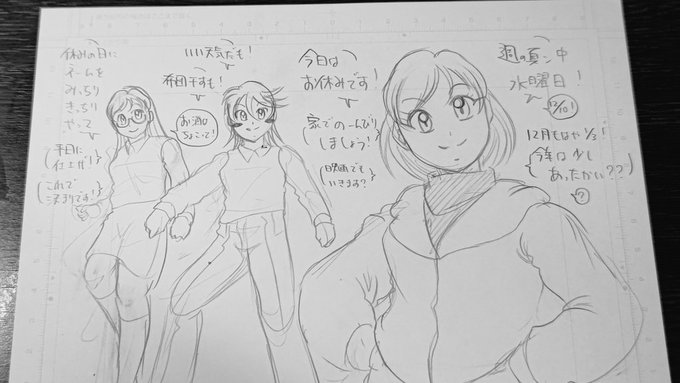 週の真ン中
水曜日!
12/10!
12月もはや1/3!
今年は少し
あったかい??
?
今日は
お休みです!
家でのーんびり
しましょう!
映画でも
いきます?
いい天気だも!
布団干すも!
お酒は
ちょこっとで!
休みの日に
ゲームを
みっちり
きっちり
やって
平日に
仕上げ!
これで
決まりです!